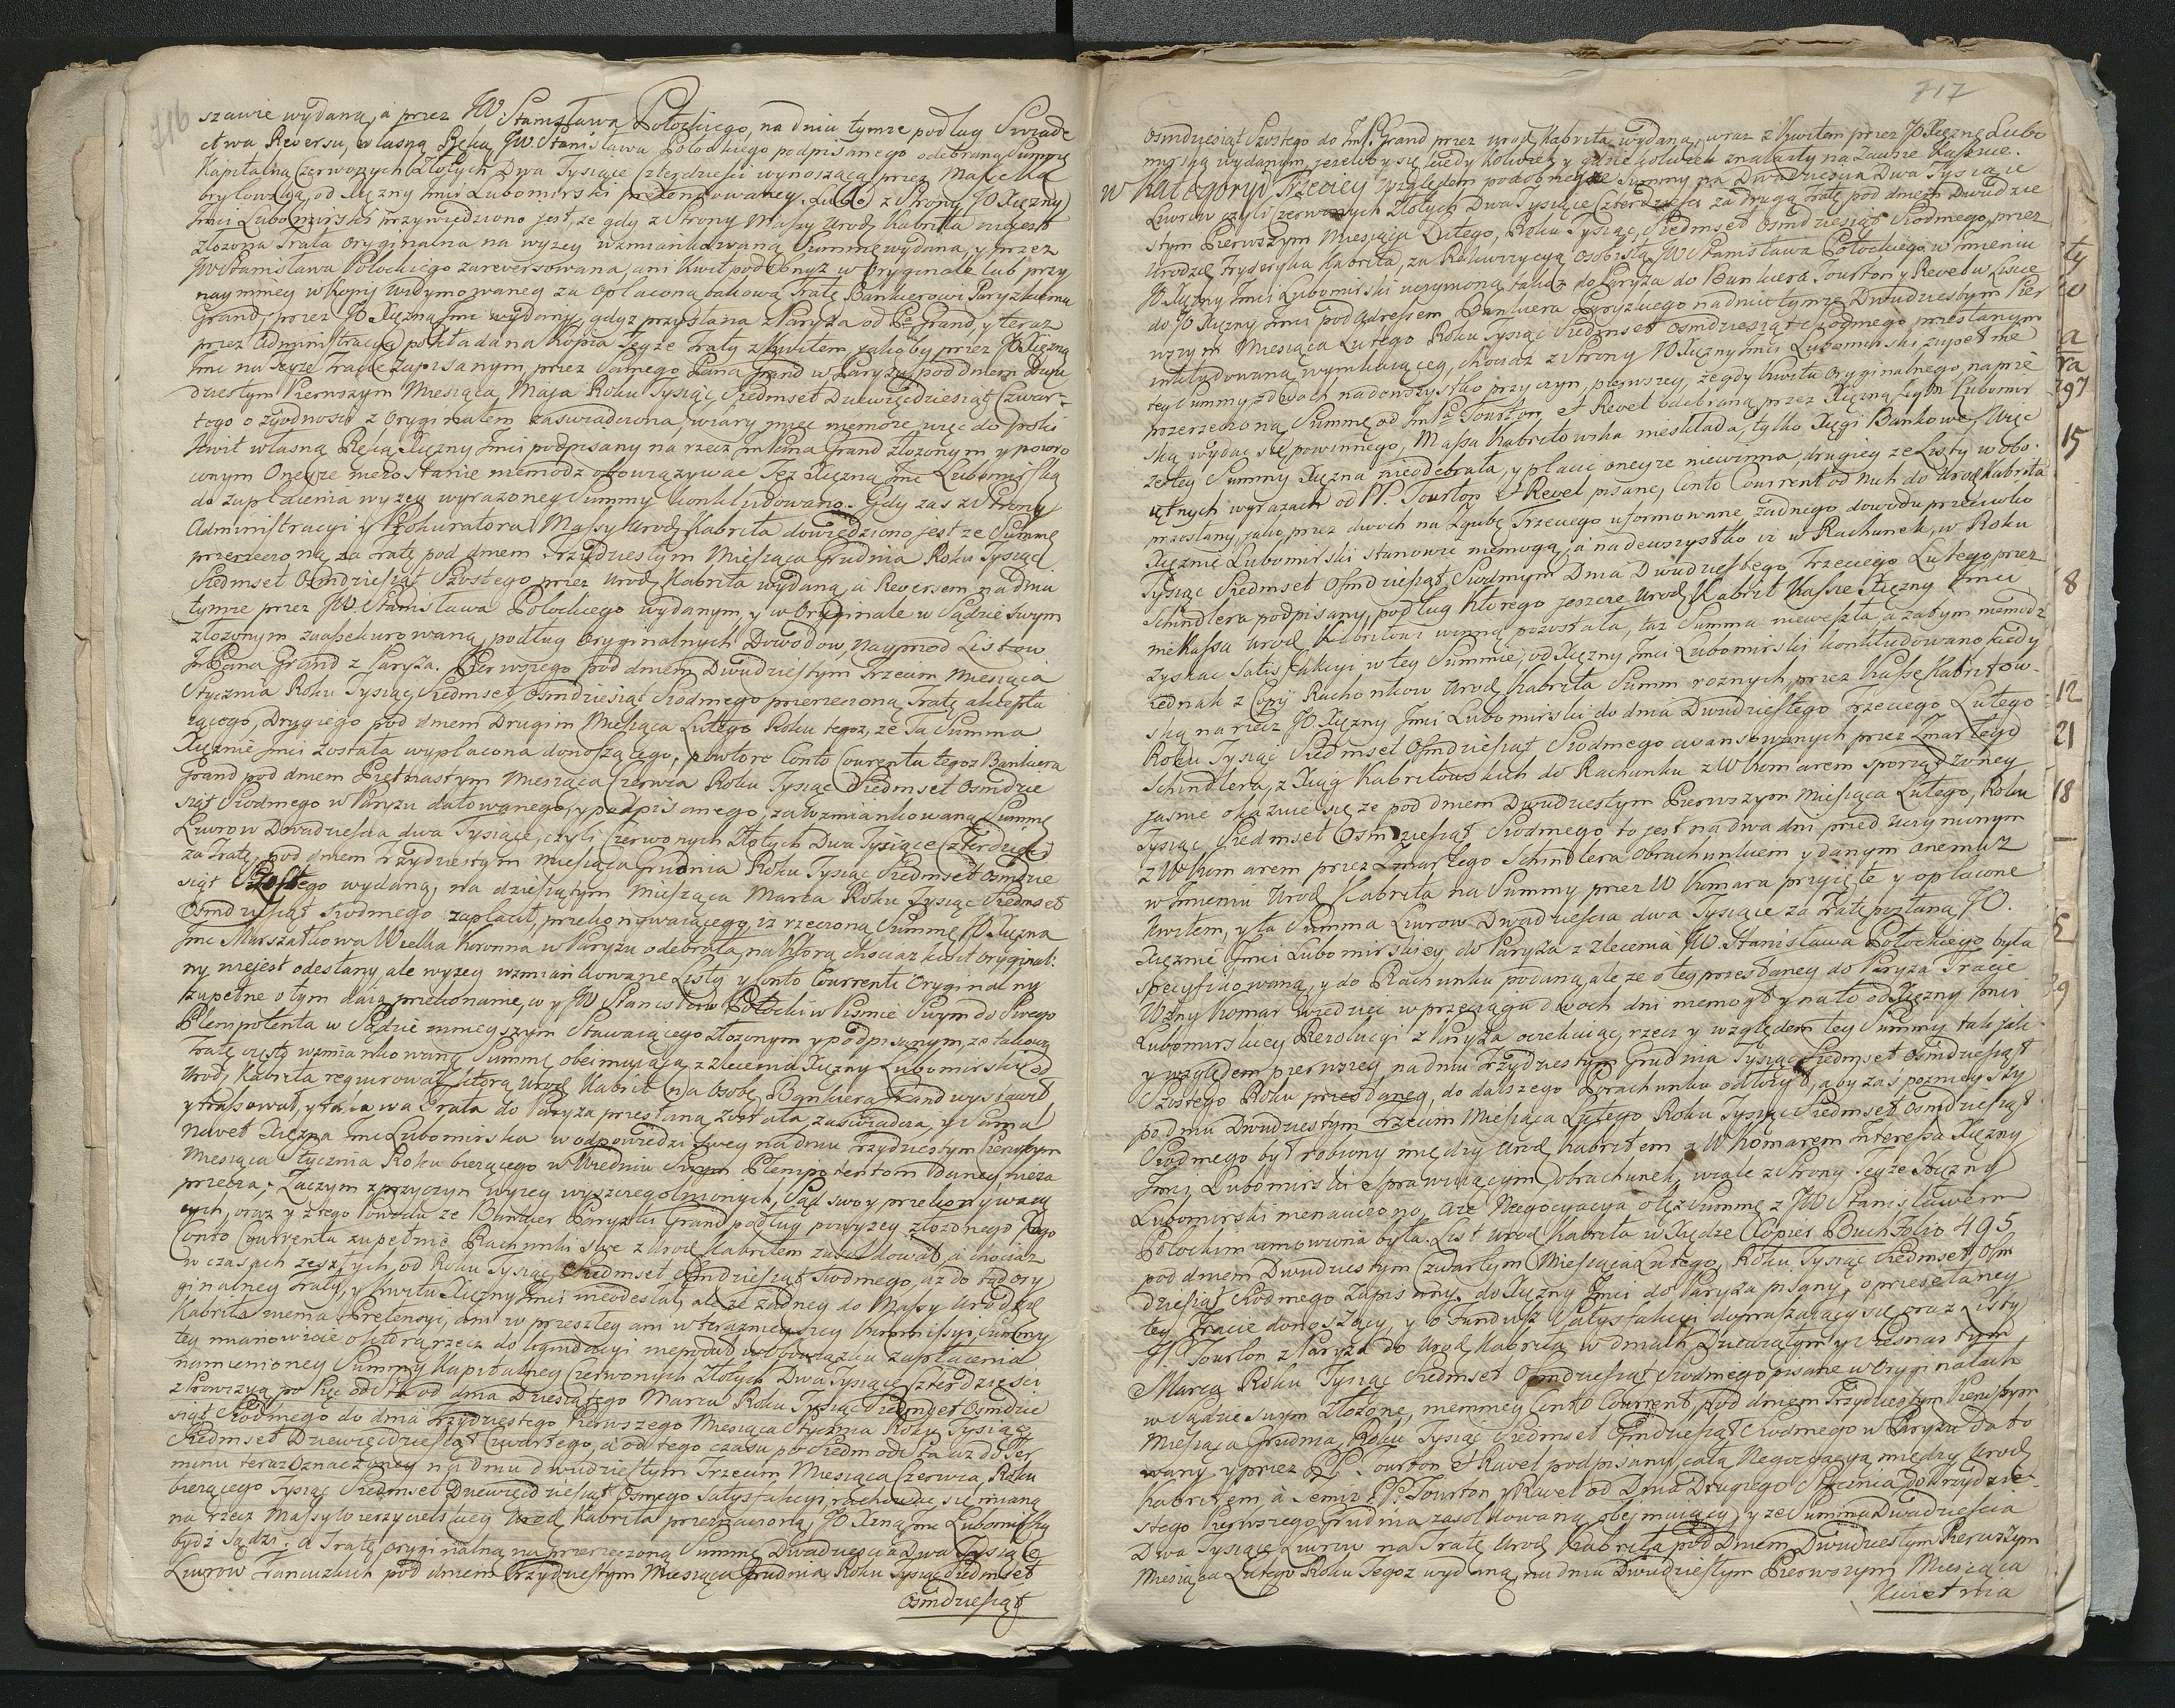 716
szawie wydaną, a przez JW Stanisława Potockiego, na dniu tymże podług Swiade
ctwa Rewersu, własną Ręką JW. Stanisława Potockiego podpisanego odebraną Summę
Kapitalną Czerwonych Złotych Dwa Tysiące Czterdzieści wynoszącą przez Massę Ka
brytowską, od Xiężny Jmci Lubomirski pretendowaney. Lubo z Strony JO Xiężny
Jmci Lubomirski przywiedziono jest, że gdy z Strony Massy Urod. Kabrita niejest
złożona Trata Oryginalna na wyżey wzmiankowaną Summę wydana, y przez
JW Stanisława Potockiego zarewersowana, ani Kwit podobnyż w Oryginale lub przy
naymniey w Kopij widymowaney za opłaconą takową Tratę Bankierowi Paryzkiemu
Grand, przez JO Xiężnę Jmci wydany, gdyż przysłana z Paryża od P. Grand, y teraz
przez Administracyą pokładana Kopia teyże Traty z Kwitem jakoby przez JO Xiężnę
Jmci na teyże Tracie zapisanym, przez Samego Pana Grand w Paryżu, pod dniem Dwu
dziestym Pierwszym Miesiąca Maja Roku Tysiąc Siedmset Dziewięćdziesiąt Czwar-
tego o zgodności z Oryginałem zaświadczona, wiary mieć niemoże, więc do póki
Kwit własną Ręką Xiężny Jmci podpisany na rzecz JmPana Grand złożonym y powró
conym Oneyże niezostanie niemódz obowiązywać Też Xiężnę Jmć Lubomirską
do zapłacenia wyżey wyrażoney Summy konkludowano. Gdy zaś ze Strony
Administracyi y Prokuratora Massy Urod. Kabrita dowiedziono jest że Summę
przerzeczoną za Tratę pod dniem Trzydziestym Miesiąca Grudnia Roku Tysiąc
Siedmset Osmdziesiąt Szostego przez Urod. Kabrita wydaną, a Rewersem na dniu
tymże przez JW. Stanisława Potockiego wydanym, y w Oryginale w Sądzie Swym
złożonym zaassekurowaną, podług Oryginalnych Dowodow, Nayprzod Listow
JmPana Grand z Paryża. Pierwszego pod dniem Dwudziestym Trzecim Miesiąca
Stycznia Roku Tysiąc Siedmset Osmdziesiąt Siodmego przerzeczoną Tratę akcepta
iącego, Drugiego pod dniem Drugim Miesiąca Lutego Roku tegoż, że Ta Summa
Xiężnie Jmci została wypłacona donoszącego, powtore Conto Courenta tegoż Bankiera
Grand pod dniem Piętnastym Miesiąca Czerwca Roku Tysiąc Siedmset Osmdzie
siąt Siodmego w Paryżu datowanego, y podpisanego, za wzmiankowaną Summę
Liwrow Dwadzieścia dwa Tysiące, czyli Czerwonych Złotych Dwa Tysiące Czterdzieści
za Tratę, pod dniem Trzydziestym Miesiąca Grudnia Roku Tysiąc Siedmset Osmdzie
siąt Szostego wydaną, na dziesiątym Miesiąca Marca Roku Tysiąc Siedmset
Osmdziesiąt Siodmego zapłacił, przekonywaiącego, iż rzeczoną Summę JO Xiężna
Jmć Marszałkowa Wielka Koronna w Paryżu odebrała, na którą chociaż kwit oryginal:
ny niejest odesłany, ale wyżey wzmiankowane Listy y Conto Courrent Oryginalny
zupełne o tym daią przekonanie, w y JW Stanisław Potocki w Pismie Swym do Swego
Plenipotenta w Sądzie ninieyszym Stawaiącego złożonym y podpisanym, że takową
Tratę często wzmiankowaną Summę obeimuiącą z zlecenia Xiężny Lubomirski od
Urod. Kabrita rekwirował, którą Urod. Kabrit na Osobę Bankiera Grand wystawił
y trasował, y takowa Trata do Paryża przesłaną została, zaświadcza, y Sama
Nawet Xiężna Jmć Lubomirska w odpowiedzi swey na dniu Trzydziestym Pierwszym
Miesiąca Stycznia Roku bieżącego w Wiedniu Swym Plenipotentom daney nieza
przecza; Zaczym z przyczyn wyżey wyszczegolnionych, Sąd swoy przekonywaią
cych, oraz y z tego Powodu że Bankier Paryzki Grand podług powyżey złożonego Jego
Conto Courrentu zupełnie Rachunki swe z Urod. Kabritem zasaldował, a chociaż
w czasach zeszłych, od Roku Tysiąc Siedmset Osmdziesiąt Siodmego, aż do tąd ory
ginalney Traty, y Kwitu Xiężny Jmci nieodesłał, ale że żadney do Massy Urodz.
Kabrita niema Pretensyi, ani w przeszłey ani w teraznieyszey Kommissyi Summy
tey mianowicie o którą rzecz do likwidacyi niepodał w obowiązku zapłacenia
namienioney Summy Kapitalney Czerwonych Złotych Dwa Tysiące Czterdzieści
z Prowizyą po Pięć od Sta od dnia Dziesiątego Marca Roku Tysiąc Siedmset Osmdzie
siąt Siodmego do dnia Trzydziestego Pierwszego Miesiąca Stycznia Roku Tysiąc
Siedmset Dziewięćdziesiąt Czwartego, a od tego czasu po Siedm od Sta aż do Ter
minu teraz Oznaczoney na dniu dwudziestym Trzecim Miesiąca Czerwca Roku
bieżącego Tysiąc Siedmset Dziewięćdziesiąt Osmego Satysfakcyi, rachować się mianą
na rzecz Massy Wierzycielskiey Urod. Kabrita przeznaczoną, JO Xżną Jmć Lubomirską
bydź Sądzi: a Tratę oryginalną na przerzeczoną Summę Dwadzieścia Dwa Tysiące
Liwrow Francuzkich pod dniem Trzydziestym Miesiąca Grudnia Roku Tysiąc Siedmset
Osmdziesiąt
717
Osmdziesiąt Szostego do JmP. Grand przez Urod. Kabrita wydaną, wraz z Kwitem przez JO Xiężnę Lubo
mirską wydanym, jeżeliby się kiedy kolwiek y gdzie kolwiek znalazły na zawsze kassuie.
W Kategoryi Trzeciey względem podobneyże Summy na Dwadzieścia Dwa Tysiące
Liwrow czyli Czerwonych Złotych Dwa Tysiące Czterdzieści za drugą Tratę pod dniem Dwudzie
stym Pierwszym Miesiąca Lutego, Roku Tysiąc, Siedmset Osmdziesiąt Siodmego, przez
Urodz. Fryderyka Kabrita, za Rekwizycyą osobistą JW Stanisława Potockiego, w Imieniu
JO Xiężny Jmci Lubomirski uczynioną, także do Paryża do Bankiera Tourton y Ravel w Liście
do JO Xiężny Jmci pod Adressem Bankiera Paryzkiego na dniu tymże Dwudziestym Pier
wszym Miesiąca Lutego Roku Tysiąc Siedmset Osmdziesiąt Siodmego przesłanym
inkludowaną wynikaiącey, chociaż z Strony JO Xiężny Jmci Lubomirski zapłacenie
tey Summy z dwoch nadewszystko przyczyn, pierwszey, że gdy Kwitu oryginalnego, na prze
przerzeczoną Summę od JmP. Tourton et Ravel odebraną przez Xiężnę Jmć Lubomir
ską wydać się powinnego, Massa Kabritowska nieskłada, tylko Xięgi Bankowe, Więc
że tey Summy Xiężna nieodebrała, y płacić oneyże niewinna, drugiey że Listy w obo:
iętnych wyrazach od PP. Tourton et Ravel pisane, Conto Courrent od nich do Urod. Kabrita
przesłany, jako przez dwoch na zgubę Trzeciego uformowane żadnego dowodu przeciwko
Xiężnie Lubomirski stanowić niemogą, a nadewszystko iż w Rachunek, w Roku
Tysiąc Siedmset Osmdziesiąt Siodmym Dnia Dwudziestego Trzeciego Lutego, przez
Schindlera podpisany, podług ktorego jeszcze Urod. Kabrit Kassie Xiężny Jmci
nie Kassa Urod. Kabritowi winną pozostała, taż Summa nieweszła, a zatym niemodz
zyskać Satisfakcyi w tey Summie, od Xiężny Jmci Lubomirski konkludowano kiedy
jednak z Copij Rachunkow Urod. Kabrita Summ roznych, przez Kassę Kabritow-
ską na rzecz JO Xiężny Jmci Lubomirski do dnia Dwudziestego Trzeciego Lutego
Roku Tysiąc Siedmset Osmdziesiąt Siodmego awansowanych przez Zmarłego
Schindlera, z Xiąg Kabritowskich do Rachunku z W Komarem sporządzoney
jasnie okazuie się że pod dniem Dwudziestym Pierwszym Miesiąca Lutego, Roku
Tysiąc Siedmset Osmdziesiąt Siodmego to jest na dwa dni przed uczynionym
z W Komarem przez Zmarłego Schindlera Obrachunkiem y danym onemuż
w Imieniu Urod. Kabrita na Summy przez W Komara przyięte y opłacone
Kwitem, y ta Summa Liwrow Dwadzieścia dwa Tysiące za Tratę posłaną JO.
Xiężnie Jmci Lubomirskiey do Paryża z zlecenia JW. Stanisława Potockiego była
specyfikowaną, y do Rachunku podaną, ale że o tey przesłaney do Paryża Tracie
Wżny Komar wiedzieć w przeciągu dwoch dni niemogł y na to od Xiężny Jmci
Lubomirskiey Rezolucyi z Paryża oczekuiąc, rzecz y względem tey Summy tak jak
y względem pierwszey na dniu Trzydziestym Grudnia Tysiąc Siedmset Osmdziesiąt
Szostego Roku przesłaney, do dalszego Obrachunku odłożył, aby zaś poznieyszy
po dniu Dwudziestym Trzecim Miesiąca Lutego Roku Tysiąc Siedmset Osmdziesiąt
Siodmego był robiony między Urod. Kabritem a W Komarem Interessa Xiężny
Jmci Lubomirski sprawuiącym Obrachunek, wcale z Strony teyże Xiężny
Lubomirski nienauczono, Aże Negocyacya o tęż Summę z JW Stanisławem
Potockim umowiona była. List Urod. Kabrita w Xiędze Copier Buch Folio 495
pod dniem Dwudziestym Czwartym Miesiąca Lutego, Roku Tysiąc Siedmset Osm
dziesiąt Siodmego zapisany, do Xiężny Jmci do Paryża pisany, o przesłaney
tey Tracie donoszący, y o Fundusz Satysfakcyi dopraszaiący się oraz Listy
PP. Tourton z Paryża do Urod. Kabrita w dniach Dziewiątym y Szesnastym
Marca Roku Tysiąc Siedmset Osmdziesiąt Siodmego pisane w Oryginałach
w Sądzie Swym złożone, niemniey Conto Courrent, pod dniem Trzydziestym Pierwszym
Miesiąca Grudnia, Roku Tysiąc Siedmset Osmdziesiąt Siodmego w Paryżu dato
wany, y przez PP. Tourton et Ravel podpisany, całą Negocyacyą między Urod.
Kabritem a Temiż PP. Tourton y Ravel od Dnia Drugiego Stycznia, do Trzydzie-
stego Pierwszego Grudnia zasoldowaną obeymuiący y że Summa Dwadzieścia
Dwa Tysiące Liwrow na Tratę Urod. Kabrita pod Dniem Dwudziestym Pierwszym
Miesiąca Lutego Roku Tegoż wydaną, na dniu Dwudziestym Pierwszym Miesiąca
Kwietnia
15
8
12
21
18